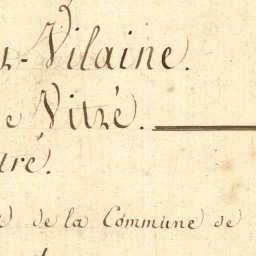 -Vilaine.
e Vitré.
uré.
de la Commune de